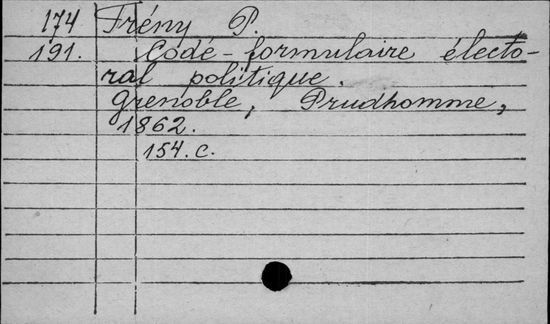 174 Frény P.
191. Codé-formulaire électo-
ral politique.
Grenoble, Prudhomme,
1862.
154.c.